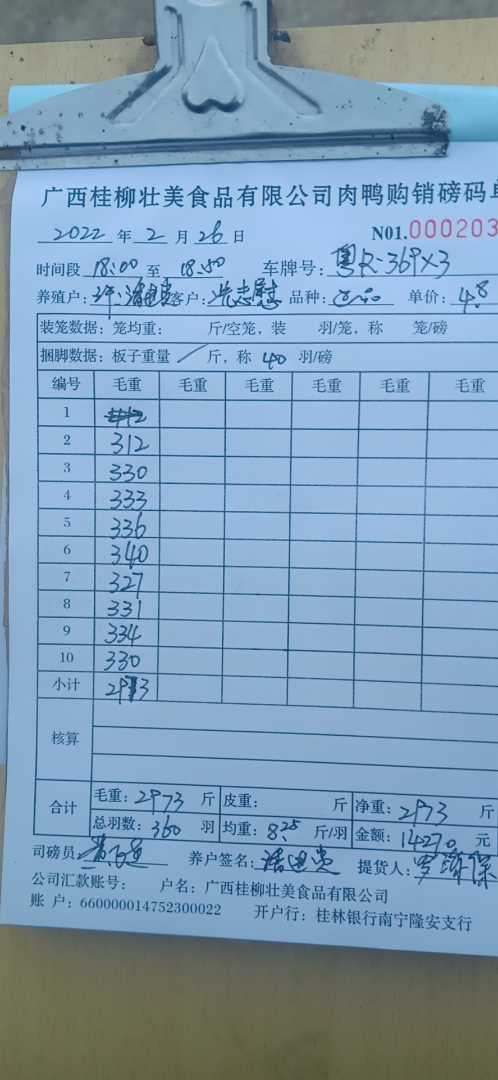 广西桂柳壮美食品有限公司肉鸭购销磅码单
2022 年 2 月 26 日 N01.000203
时间段 18:00 至 18:50 车牌号: 粤R-369X3
养殖户: 客户: 品种: 单价: 4.8
装笼数据: 笼均重: 斤/空笼, 装 羽/笼, 称 笼/磅
捆脚数据: 板子重量 / 斤, 称 40 羽/磅
编号 毛重 毛重 毛重 毛重 毛重 毛重
1
2 312
3 330
4 333
5 336
6 340
7 327
8 331
9 334
10 330
小计 2973
核算
合计 毛重: 2973 斤 皮重: 斤 净重: 2973 斤
总羽数: 360 羽 均重: 8.25 斤/羽 金额: 14270 元
司磅员 养户签名: 提货人:
公司汇款账号: 户名: 广西桂柳壮美食品有限公司
账 户: 660000014752300022 开户行: 桂林银行南宁隆安支行